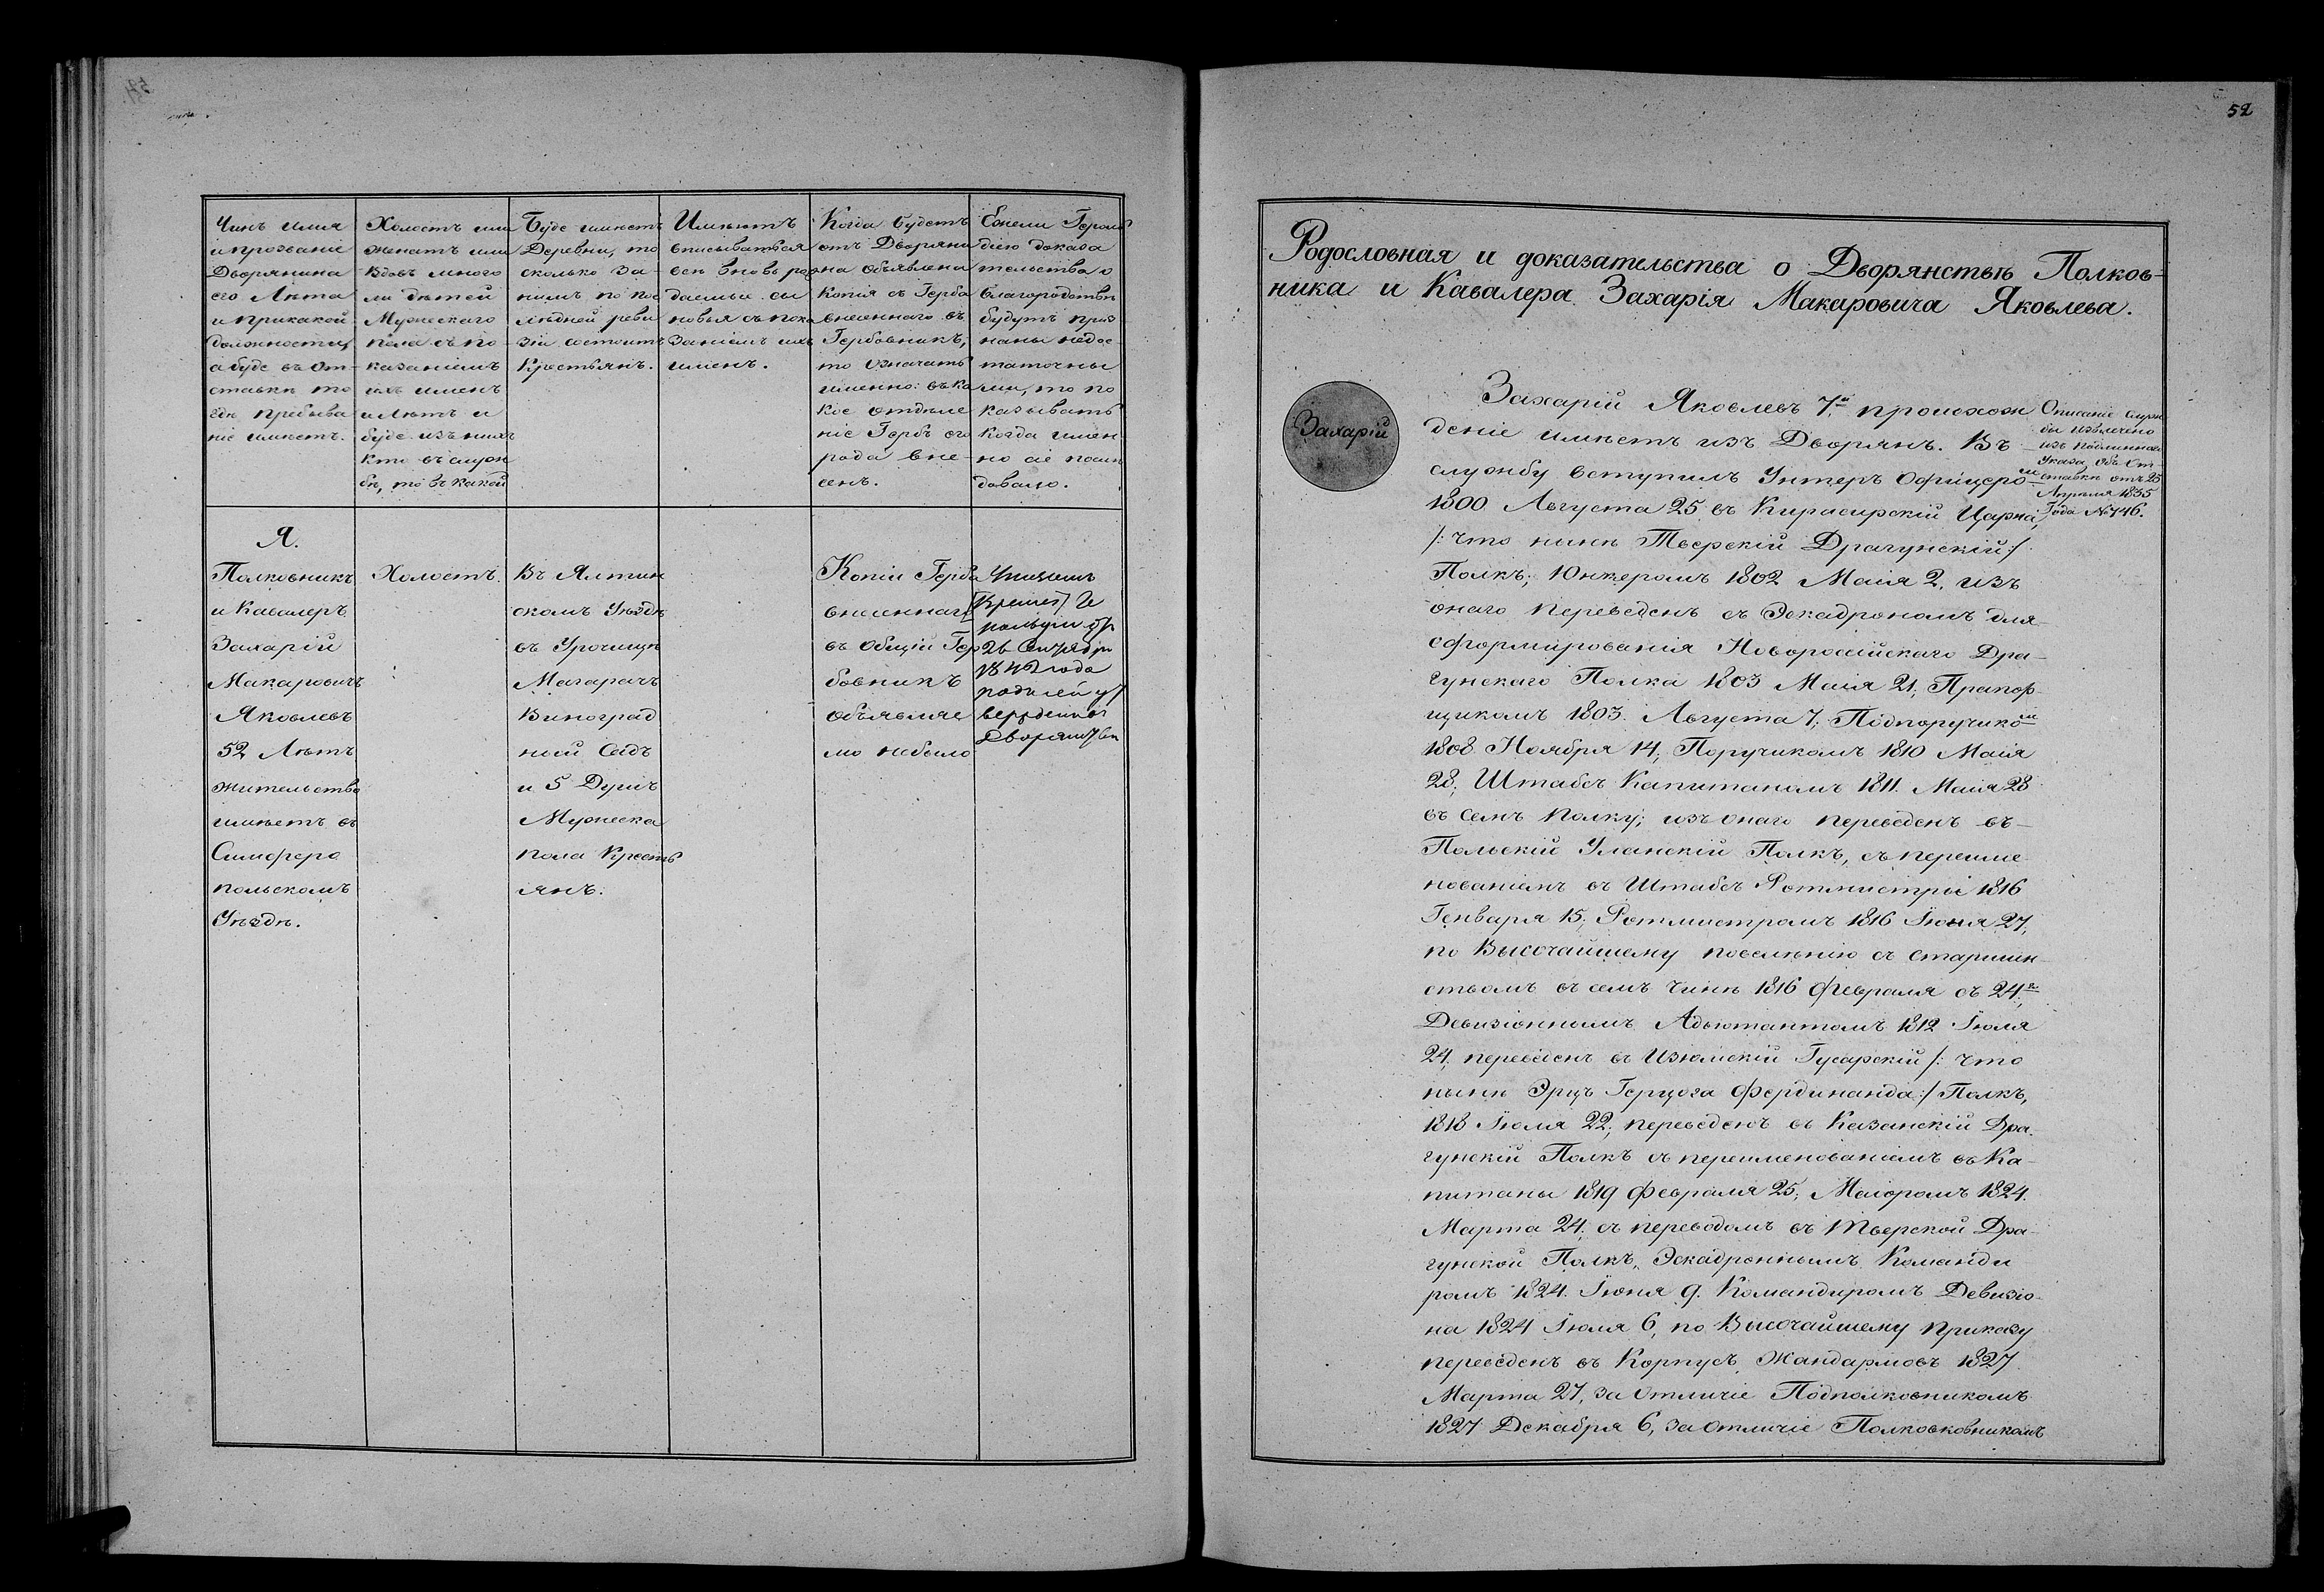 Чинъ имя
и прозваніе
Дворянина
его Лѣта
и при какой
должности,
а буде въ От-
ставкѣ то
гдѣ пребыва
ніе имѣетъ.
Холостъ или
женатъ или
вдовъ много
ли дѣтей
Мужескаго
пола съ по-
казаніемъ
ихъ именъ
и Лѣтъ и
буде изъ нихъ
кто въ служ
бѣ, то въ какой
Буде имѣетъ
Деревни, то
сколько за-
нимъ по пос
лѣдней реви
зіи состоитъ
Крестьянъ.
Имѣютъ
вписываться
всѣ вновь рож
даемые сы
новья съ пока
заніемъ ихъ
именъ.
Когда будетъ
отъ Дворяни
на объявлена
копія съ Герба
внесеннаго въ
Гербовникъ,
то означать
именно: въ ка
кое отдѣле
ніе Гербъ его
рода вне-
сенъ.
Ежели Героль
діею доказа
тельства о
благородствѣ
будутъ приз
наны недос-
таточны
ми, то по
казывать
когда имен
но сіе послѣ
довало.
Я.
Полковникъ
и Кавалеръ
Захарій
Макаровичъ
Яковлевъ
52 Лѣтъ
жительство
имѣетъ въ
Симферо
польскомъ
Уѣздѣ.
Холостъ.
Въ Ялтин
скомъ Уѣздѣ
въ Урочищѣ
Магарачъ
Виноград
ный Садъ
и 5 Душъ
Мужеска
пола Кресть
янъ.
Копіи Герба
внесеннаго
въ Общій Гер
бовникъ
объявляе
мо небыло
Указомъ
[Времен] Ге
рольдіи отъ
26 Сентября
1842 года
родъ сей ут
вержденъ въ
Дворянствѣ
52
Родословная и доказательства о Дворянствѣ Полков-
ника и Кавалера Захарія Макаровича Яковлева.
Захарій
Захарій Яковлевъ 7й происхож
деніе имѣетъ изъ Дворянъ. Въ
службу вступилъ Унтеръ Офицеромъ
1800 Августа 25 въ Кирасирскій Царна,
/: что нынѣ Тверскій Драгунскій:/
Полкъ; Юнкеромъ 1802 Маія 2, изъ
онаго переведенъ съ Эскадрономъ для
сформированія Новороссійскаго Дра-
гунскаго Полка 1803 Маія 21, Прапор-
щикомъ 1803. Августа 7; Подпоручикомъ
1808 Ноября 14; Поручикомъ 1810 Маія
28; Штабсъ Капитаномъ 1811. Маія 28
въ семъ полку; изъ онаго переведенъ въ-
Польскій Уланскій Полкъ, съ переиме
нованіемъ въ Штабсъ Ротмистры 1816
Генваря 15; Ротмистромъ 1816 Іюня 27;
по Высочайшему повелѣнію съ старшин
ствомъ въ семъ чинѣ 1816 Февраля съ 24го
Девизіоннымъ Адъютантомъ 1812 Іюля
24; переведенъ въ Изюмскій Гусарскій /: что
нынѣ Эрцъ Герцога Фердинанда:/ Полкъ,
1818 Іюля 22; переведенъ въ Казанскій Дра
гунскій Полкъ съ переименованіемъ въ Ка-
питаны 1819 Февраля 25; Маіоромъ 1824.
Марта 24; съ переводомъ въ Тверской Дра-
гунской Полкъ, Эскадроннымъ Команди
ромъ 1824. Іюня 9. Командиромъ Девизіо-
на 1824 Іюля 6, по Высочайшему приказу
переведенъ въ Корпусъ Жандармовъ 1827
Марта 27, за отличіе Подполковникомъ
1827 Декабря 6, за отличіе Полковковникомъ
Описаніе служ
бы извлечено
изъ подлиннаго
Указа объ От-
ставкѣ отъ 25
Апрѣля 1835
Года № 446.